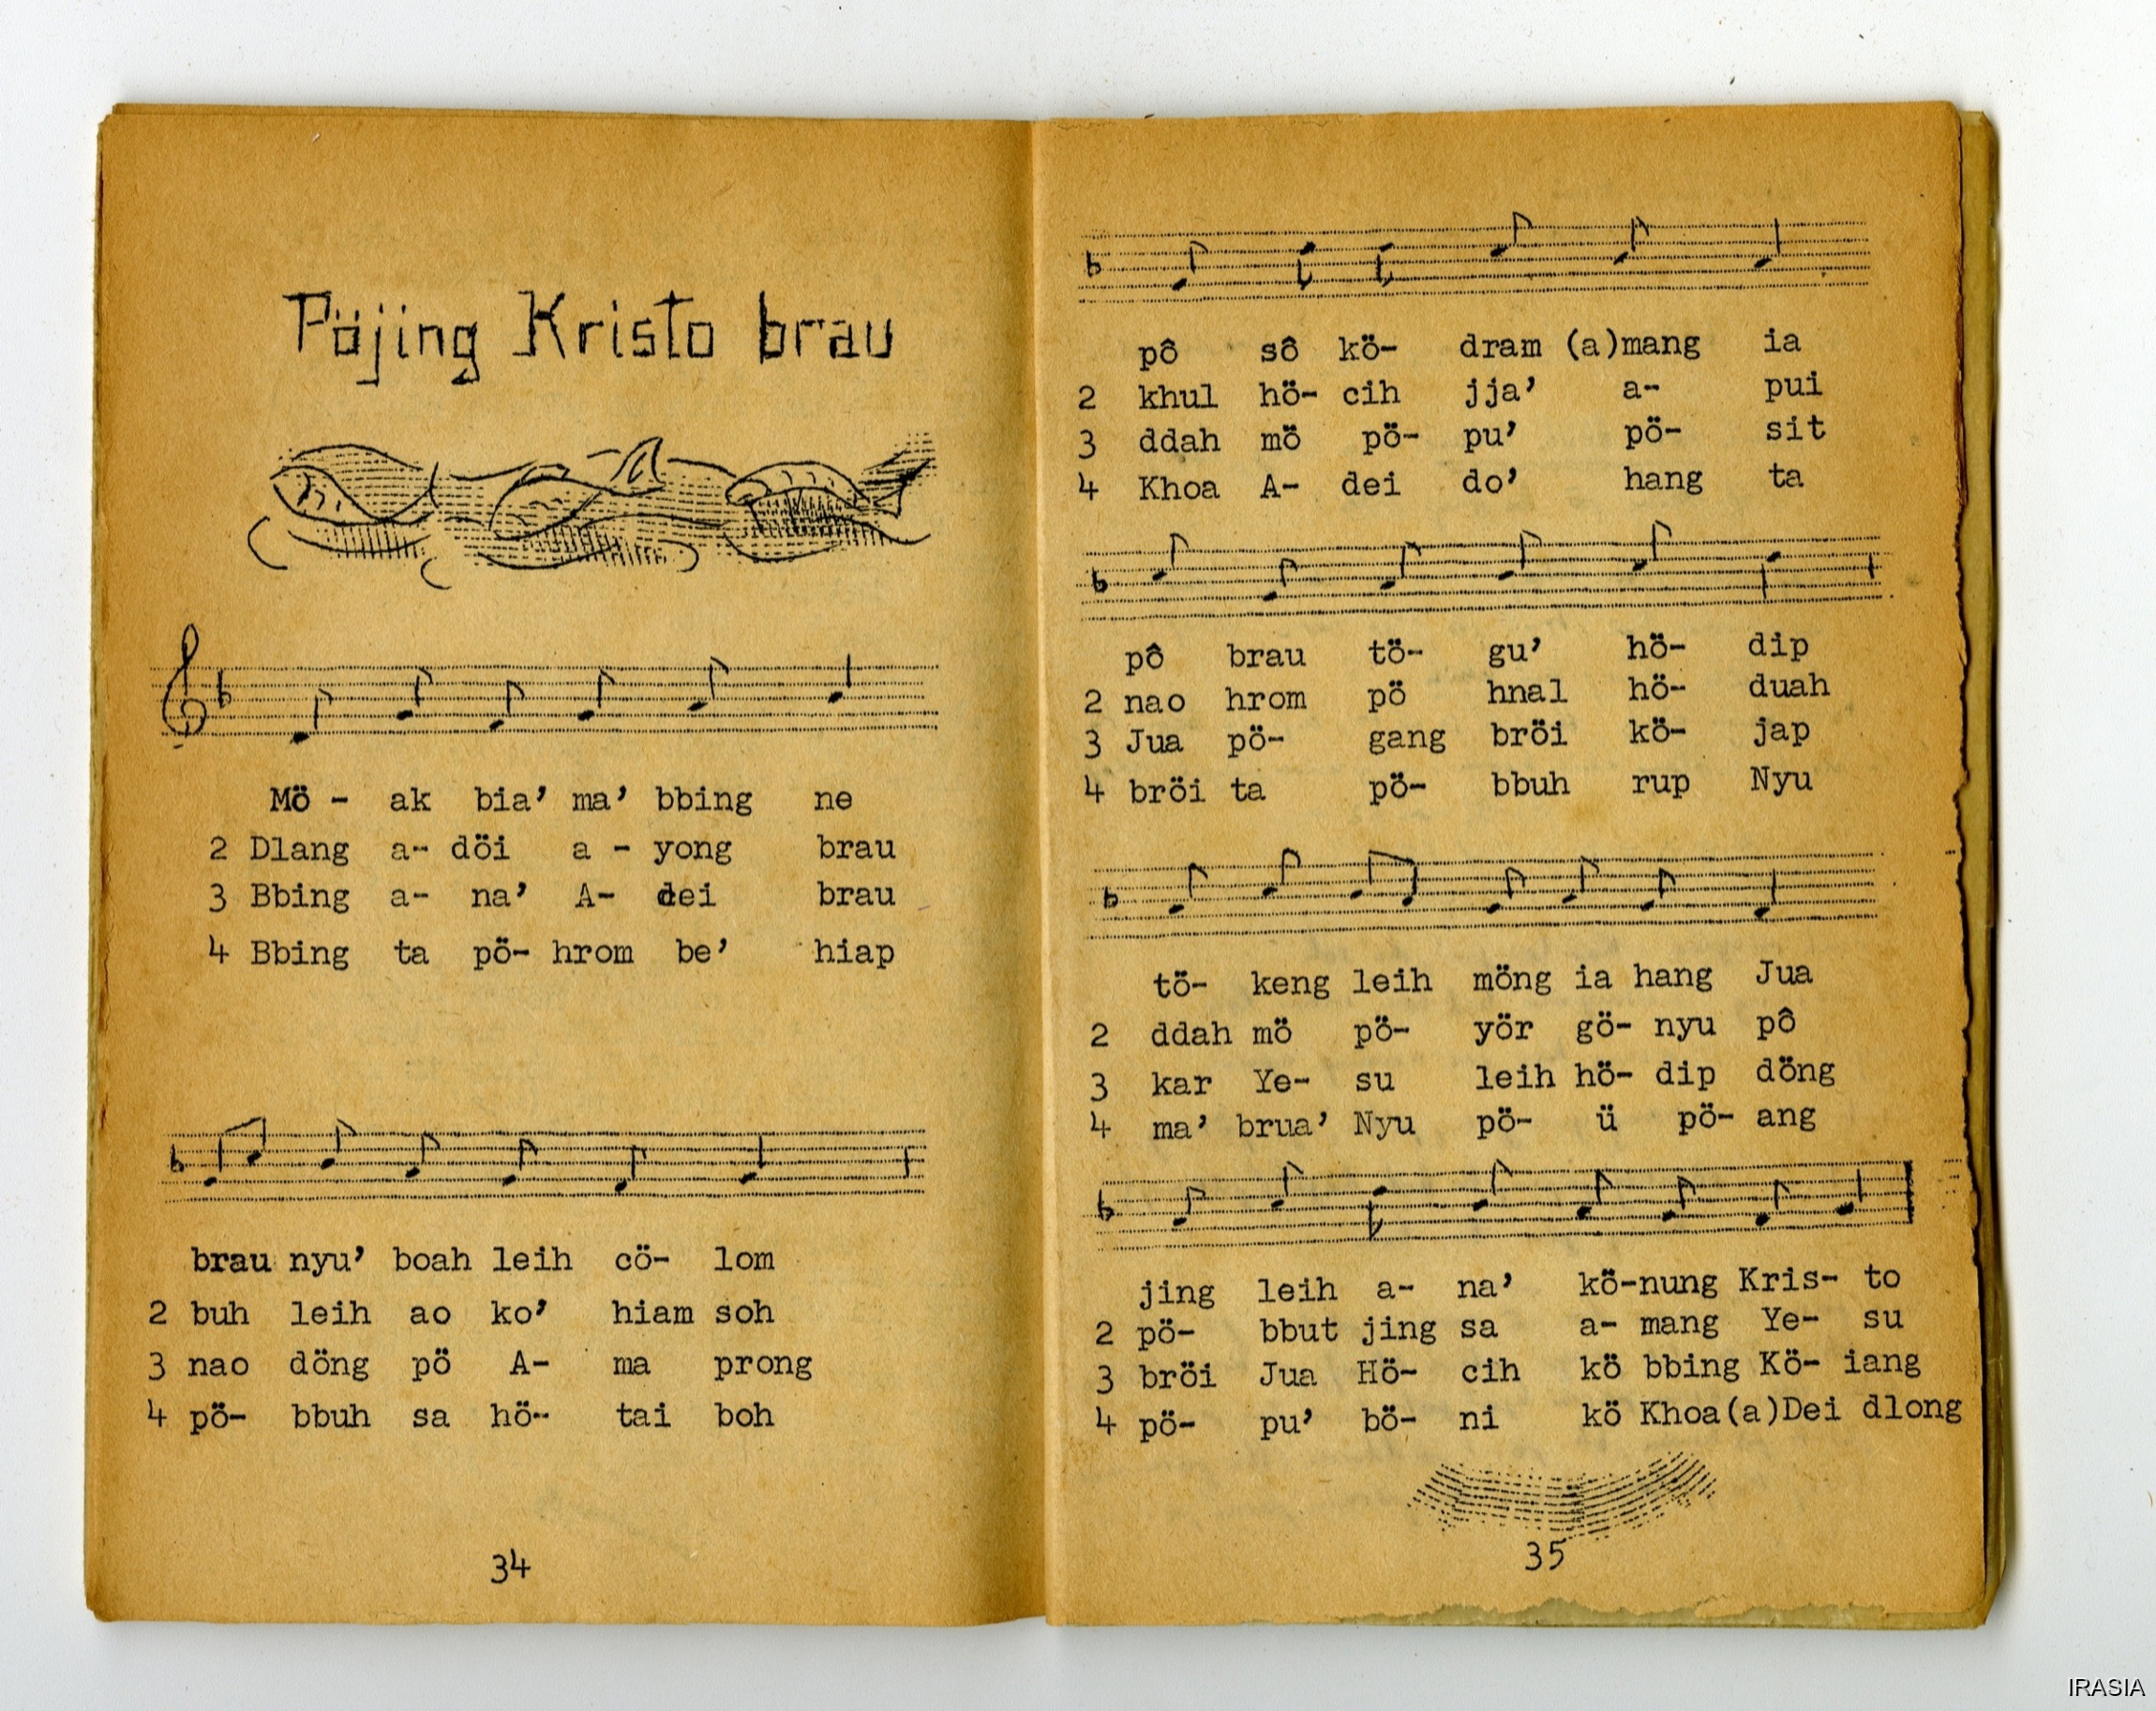 Pöjing Kristo brau
Mö - ak bia' ma' bbing ne
2 Dlang a- döi a - yong brau
3 Bbing a- na' A- dei brau
4 Bbing ta pö- hrom be' hiap
brau nyu' boah leih cö- lom
2 buh leih ao ko' hiam soh
3 nao döng pö A- ma prong
4 pö- bbuh sa hö- tai boh
34
pô sô kö- dram (a)mang ia
2 khul hö- cih jja' a- pui
3 ddah mö pö- pu' pö- sit
4 Khoa A- dei do' hang ta
pô brau tö- gu' hö- dip
2 nao hrom pö hnal hö- duah
3 Jua pö- gang bröi kö- jap
4 bröi ta pö- bbuh rup Nyu
tö- keng leih möng ia hang Jua
2 ddah mö pö- yör gö- nyu pô
3 kar Ye- su leih hö- dip döng
4 ma' brua' Nyu pö- ü pö- ang
jing leih a- na' kö-nung Kris- to
2 pö- bbut jing sa a- mang Ye- su
3 bröi Jua Hö- cih kö bbing Kö- iang
4 pö- pu' bö- ni kö Khoa(a)Dei dlong
35
IRASIA